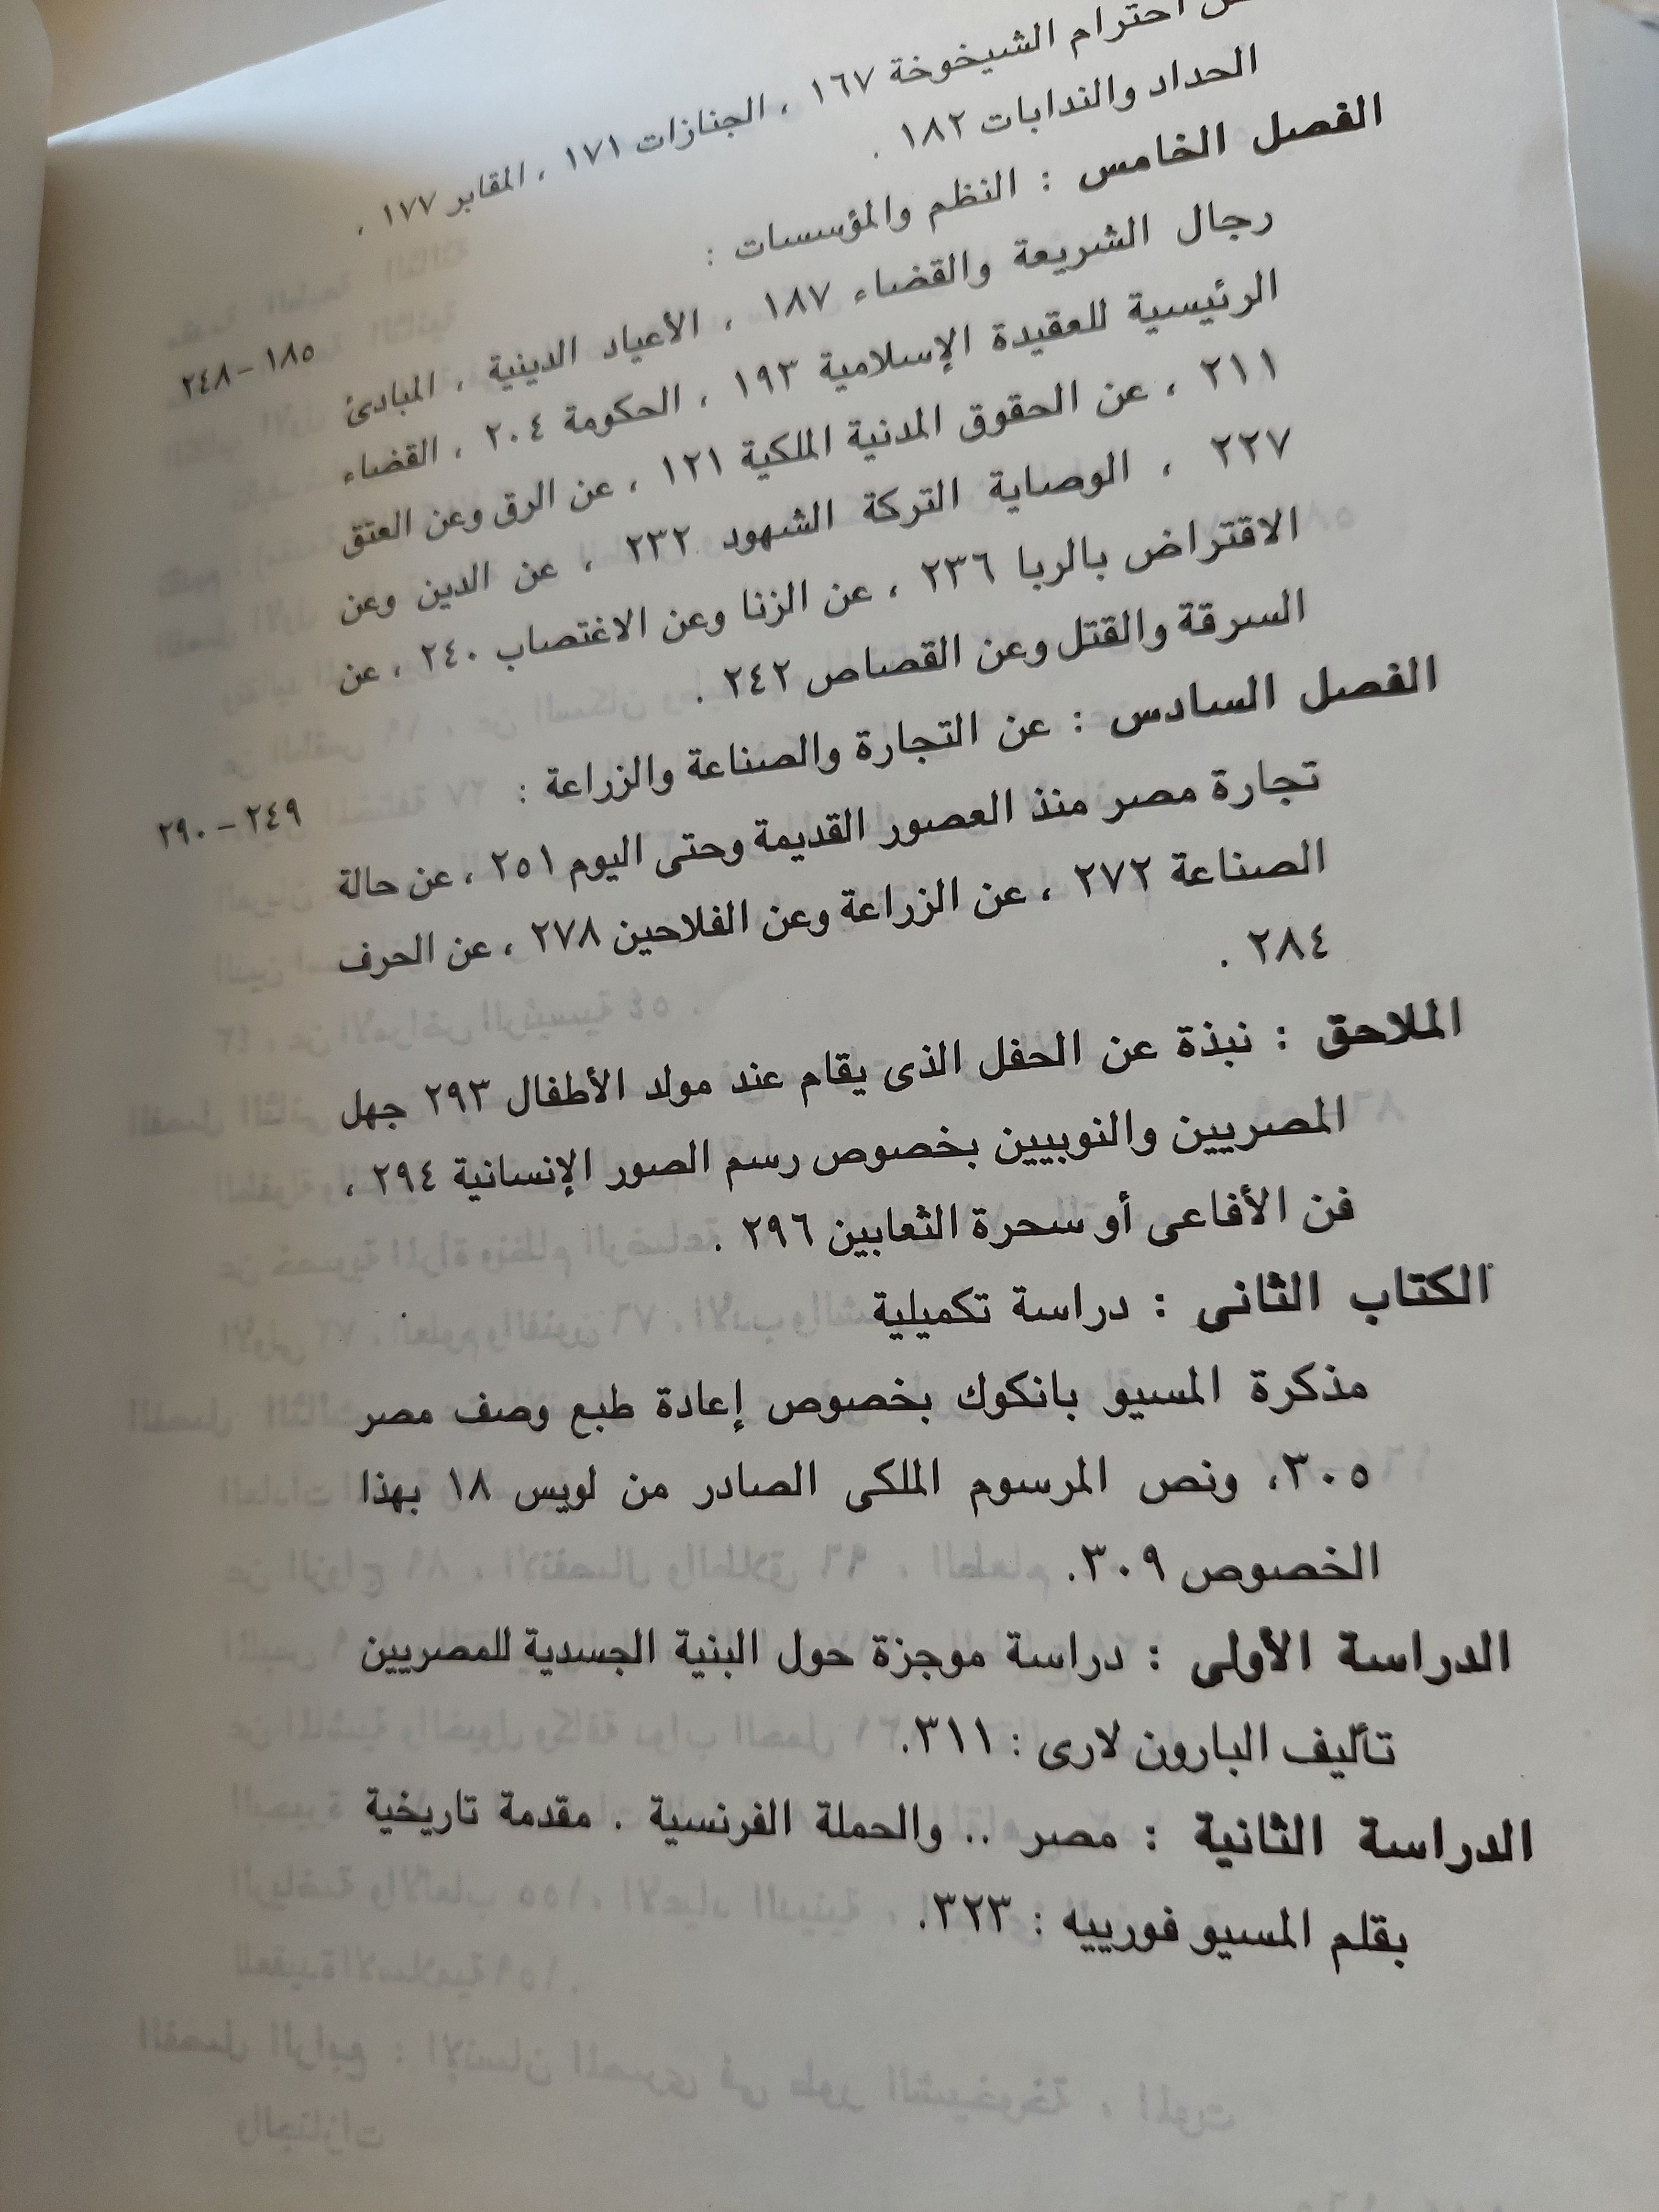 احترام الشيخوخة ١٦٧ ، الجنازات ١٧١ ، المقابر ١٧٧ ،
الحداد والندابات ١٨٢ .
الفصل الخامس : النظم والمؤسسات : ١٨٥ – ٢٤٨
رجال الشريعة والقضاء ١٨٧ ، الأعياد الدينية ، المبادئ
الرئيسية للعقيدة الإسلامية ١٩٣ ، الحكومة ٢٠٤ ، القضاء
٢١١ ، عن الحقوق المدنية الملكية ١٢١ ، عن الرق وعن العتق
٢٢٧ ، الوصاية التركة الشهود ٢٣٢ ، عن الدين وعن
الاقتراض بالربا ٢٣٦ ، عن الزنا وعن الاغتصاب ٢٤٠ ، عن
السرقة والقتل وعن القصاص ٢٤٢ .
الفصل السادس : عن التجارة والصناعة والزراعة : ٢٤٩ – ٢٩٠
تجارة مصر منذ العصور القديمة وحتى اليوم ٢٥١ ، عن حالة
الصناعة ٢٧٢ ، عن الزراعة وعن الفلاحين ٢٧٨ ، عن الحرف
٢٨٤ .
الملاحق : نبذة عن الحفل الذى يقام عند مولد الأطفال ٢٩٣ جهل
المصريين والنوبيين بخصوص رسم الصور الإنسانية ٢٩٤ ،
فن الأفاعى أو سحرة الثعابين ٢٩٦ .
الكتاب الثانى : دراسة تكميلية
مذكرة المسيو بانكوك بخصوص إعادة طبع وصف مصر
٣٠٥، ونص المرسوم الملكى الصادر من لويس ١٨ بهذا
الخصوص ٣٠٩.
الدراسة الأولى : دراسة موجزة حول البنية الجسدية للمصريين
تأليف البارون لارى : ٣١١.
الدراسة الثانية : مصر .. والحملة الفرنسية . مقدمة تاريخية
بقلم المسيو فورييه : ٣٢٣.